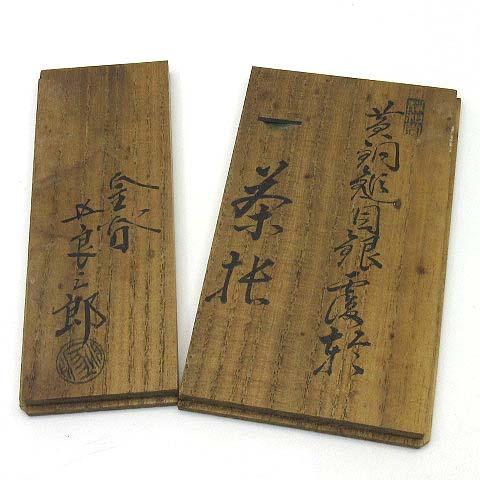 黄銅鎚目銀覆輪
一 茶托
金谷
五良三郎